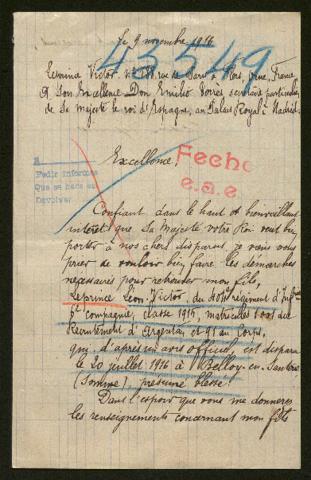 le 9 novembre 1916
43549
Victor rue de France
A Son Excellence Don Emilio Torres secrétaire particulier
de Sa Majesté le roi d'Espagne, au Palais Royal à Madrid.
Excellence
Feche
e.a.e.
A
Pedir informes
Que se hace en
Devolver
Confiant dans le haut et bienveillant
intérêt que Sa Majesté votre Roi veut bien
porter à nos chers disparus, je viens vous
prier de vouloir bien faire les démarches
nécessaires pour retrouver mon fils,
Leprince Léon Victor, du régiment d'Inf
6e compagnie, classe 1915, matricule au
Recrutement d'Argentan et 91 au Corps,
qui, d'après un avis officiel, est disparu
le 20 juillet 1916 à Belloy-en-Santerre
(Somme), présumé blessé.
Dans l'espoir que vous me donnerez
les renseignements concernant mon fils